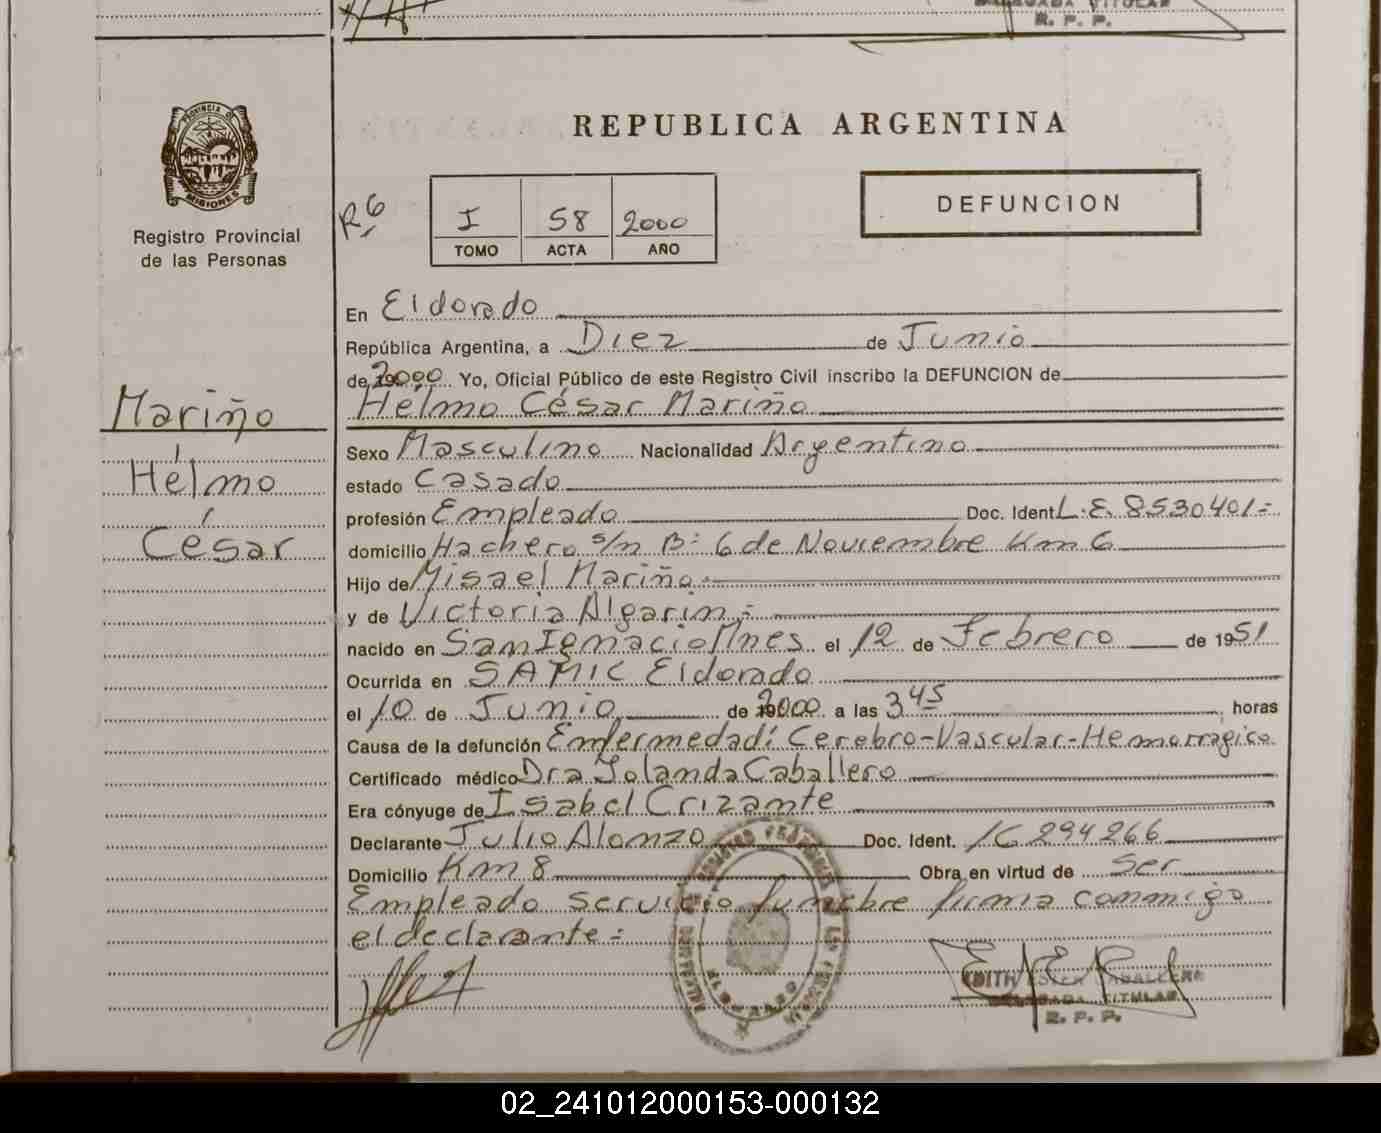 TITULAR
R. P. P.
PROVINCIA DE
MISIONES
Registro Provincial
de las Personas
REPUBLICA ARGENTINA
R6
I 58 2000
TOMO ACTA AÑO
DEFUNCION
En Eldorado
República Argentina, a Diez de Junio
de 2000 Yo, Oficial Público de este Registro Civil inscribo la DEFUNCION de
Mariño
Hélmo
César
Hélmo César Mariño
Sexo Masculino Nacionalidad Argentino
estado Casado
profesión Empleado Doc. Ident. L.E. 8530401=
domicilio Hachero s/n B: 6 de Noviembre Km 6
Hijo de Misael Mariño
y de Victoria Algarin =
nacido en San Ignacio Mnes el 12 de Febrero de 1951
Ocurrida en SAMIC Eldorado
el 10 de Junio de 2000 a las 3 45 horas
Causa de la defunción Enfermedad: Cerebro-Vascular-Hemorragico
Certificado médico Dra Yolanda Caballero
Era cónyuge de Isabel Crizante
Declarante Julio Alonzo Doc. Ident. 16294266
Domicilio Km 8 Obra en virtud de Ser
Empleado servicio funebre firma conmigo
el declarante =
EDITH ESTER CABALLERO
DELEGADA TITULAR
R. P. P.
ELDORADO
02_241012000153-000132